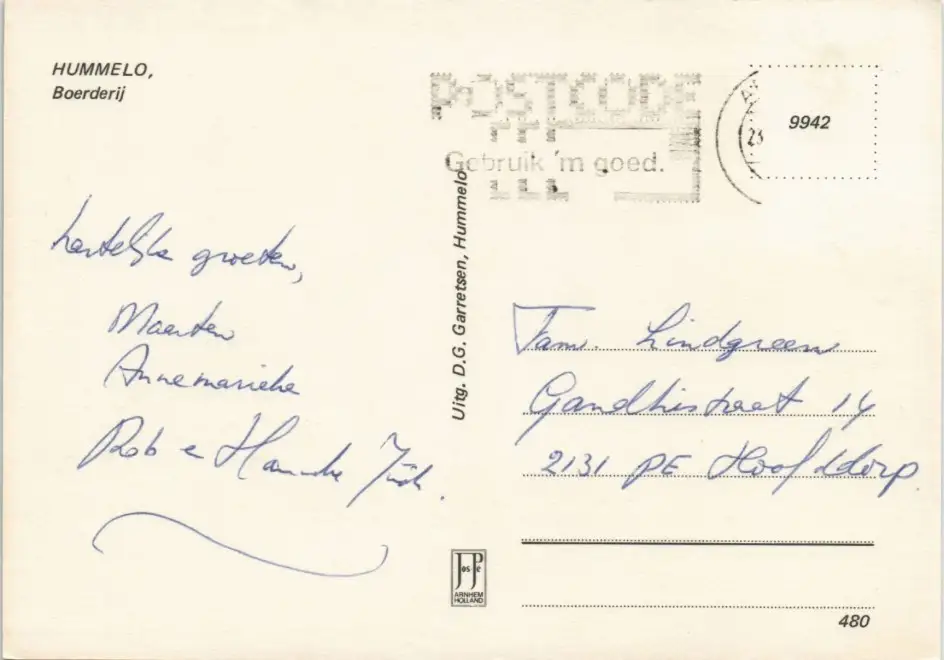 HUMMELO,
Boerderij
POSTCODE
Gebruik 'm goed.
23
9942
hartelijke groeten,
Maarten
Annemarieke
Rob en Hanneke
Uitg. D.G. Garretsen, Hummelo
Fam. Lindgreen
Gandhistraat 14
2131 PE Hoofddorp.
JosPe
ARNHEM
HOLLAND
480